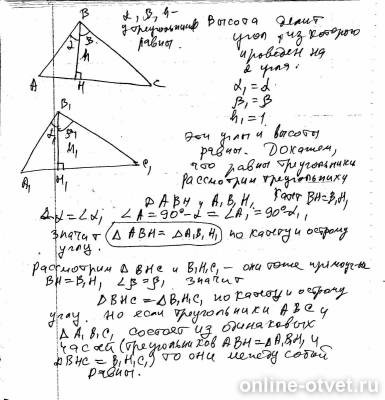 B
α, β, h -
у треугольников
равны.
Высота делит
угол, из которого
проведен на
2 угла:
α₁ = α
β₁ = β
h₁ =
α β
h
A H C
B₁
α₁ β₁
h₁
A₁ H₁ C₁
Эти углы и высоты
равны. Докажем,
что равны треугольники
Рассмотрим треугольники
△ABH и A₁B₁H₁
BH=B₁H₁
∠α=∠α₁, ∠A=90°-α=∠A₁=90°-α₁,
значит △ABH=△A₁B₁H₁ по катету и острому
углу.
Рассмотрим △BHC и B₁H₁C₁ - они тоже
BH=B₁H₁, ∠β=β₁ значит
△BHC=△B₁H₁C₁ по катету и острому
углу. Но если треугольники ABC и
△A₁B₁C₁ состоят из одинаковых
частей (треугольников ABH=△A₁B₁H₁ и
△BHC=B₁H₁C₁) то они между собой
равны.
online-otvet.ru